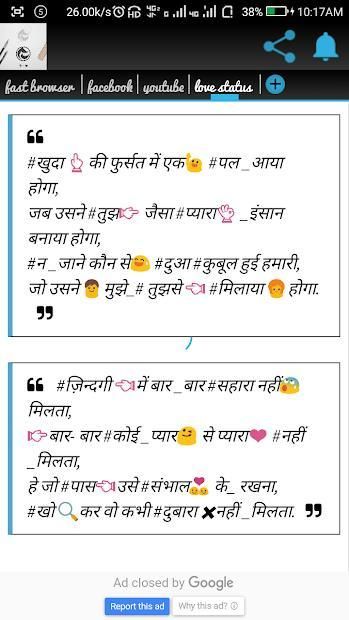 26.00k/s HD 4G 4G 38% 10:17AM
fast browser facebook youtube love status
#खुदा 👆 की फुर्सत में एक #पल _आया
होगा,
जब उसने #तुझ👉 जैसा #प्यारा👌 _इंसान
बनाया होगा,
#न _जाने कौन से😅 #दुआ #कुबूल हुई हमारी,
जो उसने 👦 मुझे_# तुझसे 👈 #मिलाया 👩 होगा.
#ज़िन्दगी 👈में बार _बार #सहारा नहीं😰
मिलता,
👉बार- बार #कोई _प्यार😋 से प्यारा❤ #नहीं
_मिलता,
हे जो #पास👈उसे #संभाल💑 के_ रखना,
#खो🔍 कर वो कभी #दुबारा ✖नहीं _मिलता.
Ad closed by Google
Report this ad Why this ad?